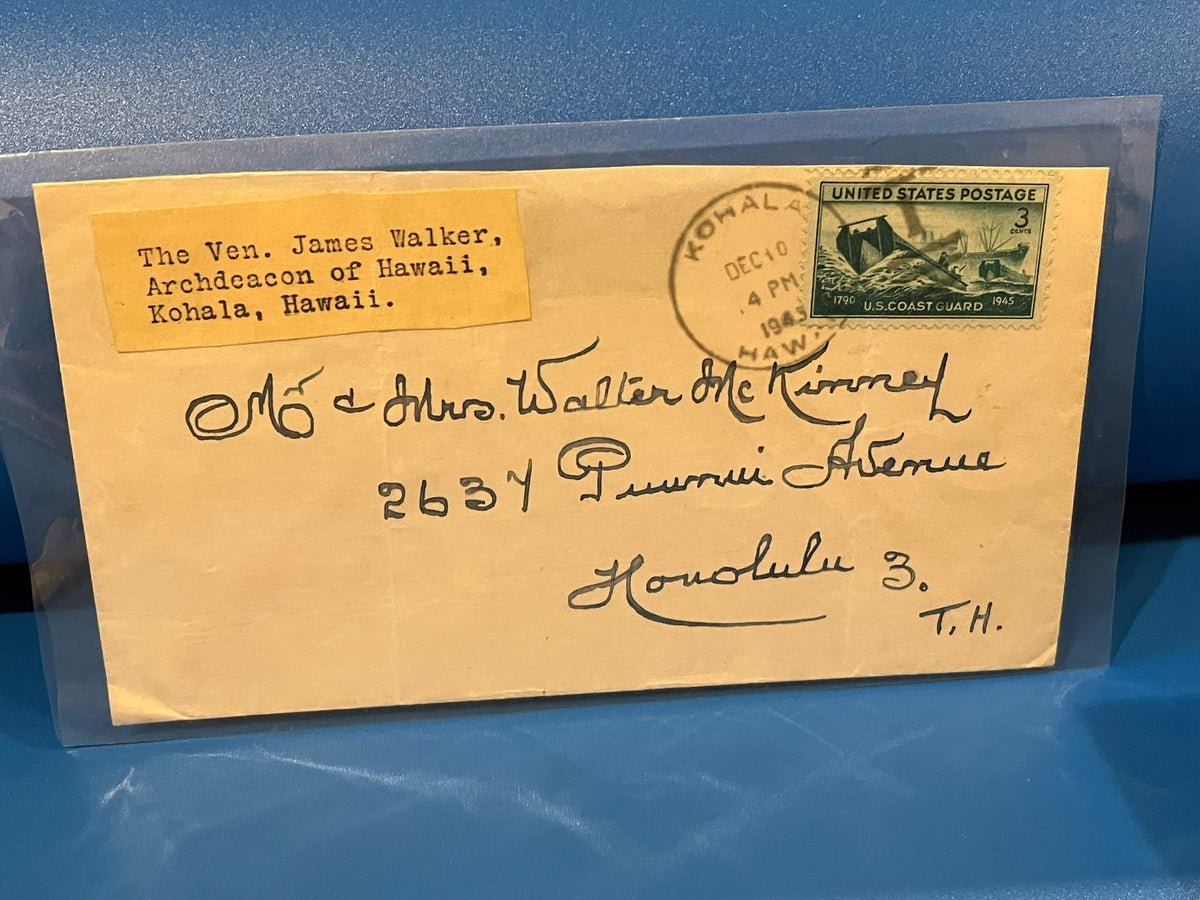 The Ven. James Walker,
Archdeacon of Hawaii,
Kohala, Hawaii.
KOHALA
DEC 10
4 PM
1945
HAW.
UNITED STATES POSTAGE
3
CENTS
1790 U.S. COAST GUARD 1945
Mr & Mrs. Walter McKinney
2637 Puunui Avenue
Honolulu 3.
T.H.